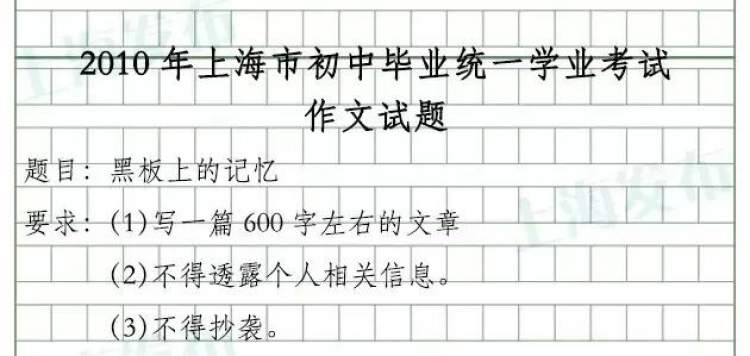 2010 年上海市初中毕业统一学业考试
作文试题
题目：黑板上的记忆
要求：(1)写一篇 600 字左右的文章
(2)不得透露个人相关信息。
(3)不得抄袭。
上海发布
上海发布